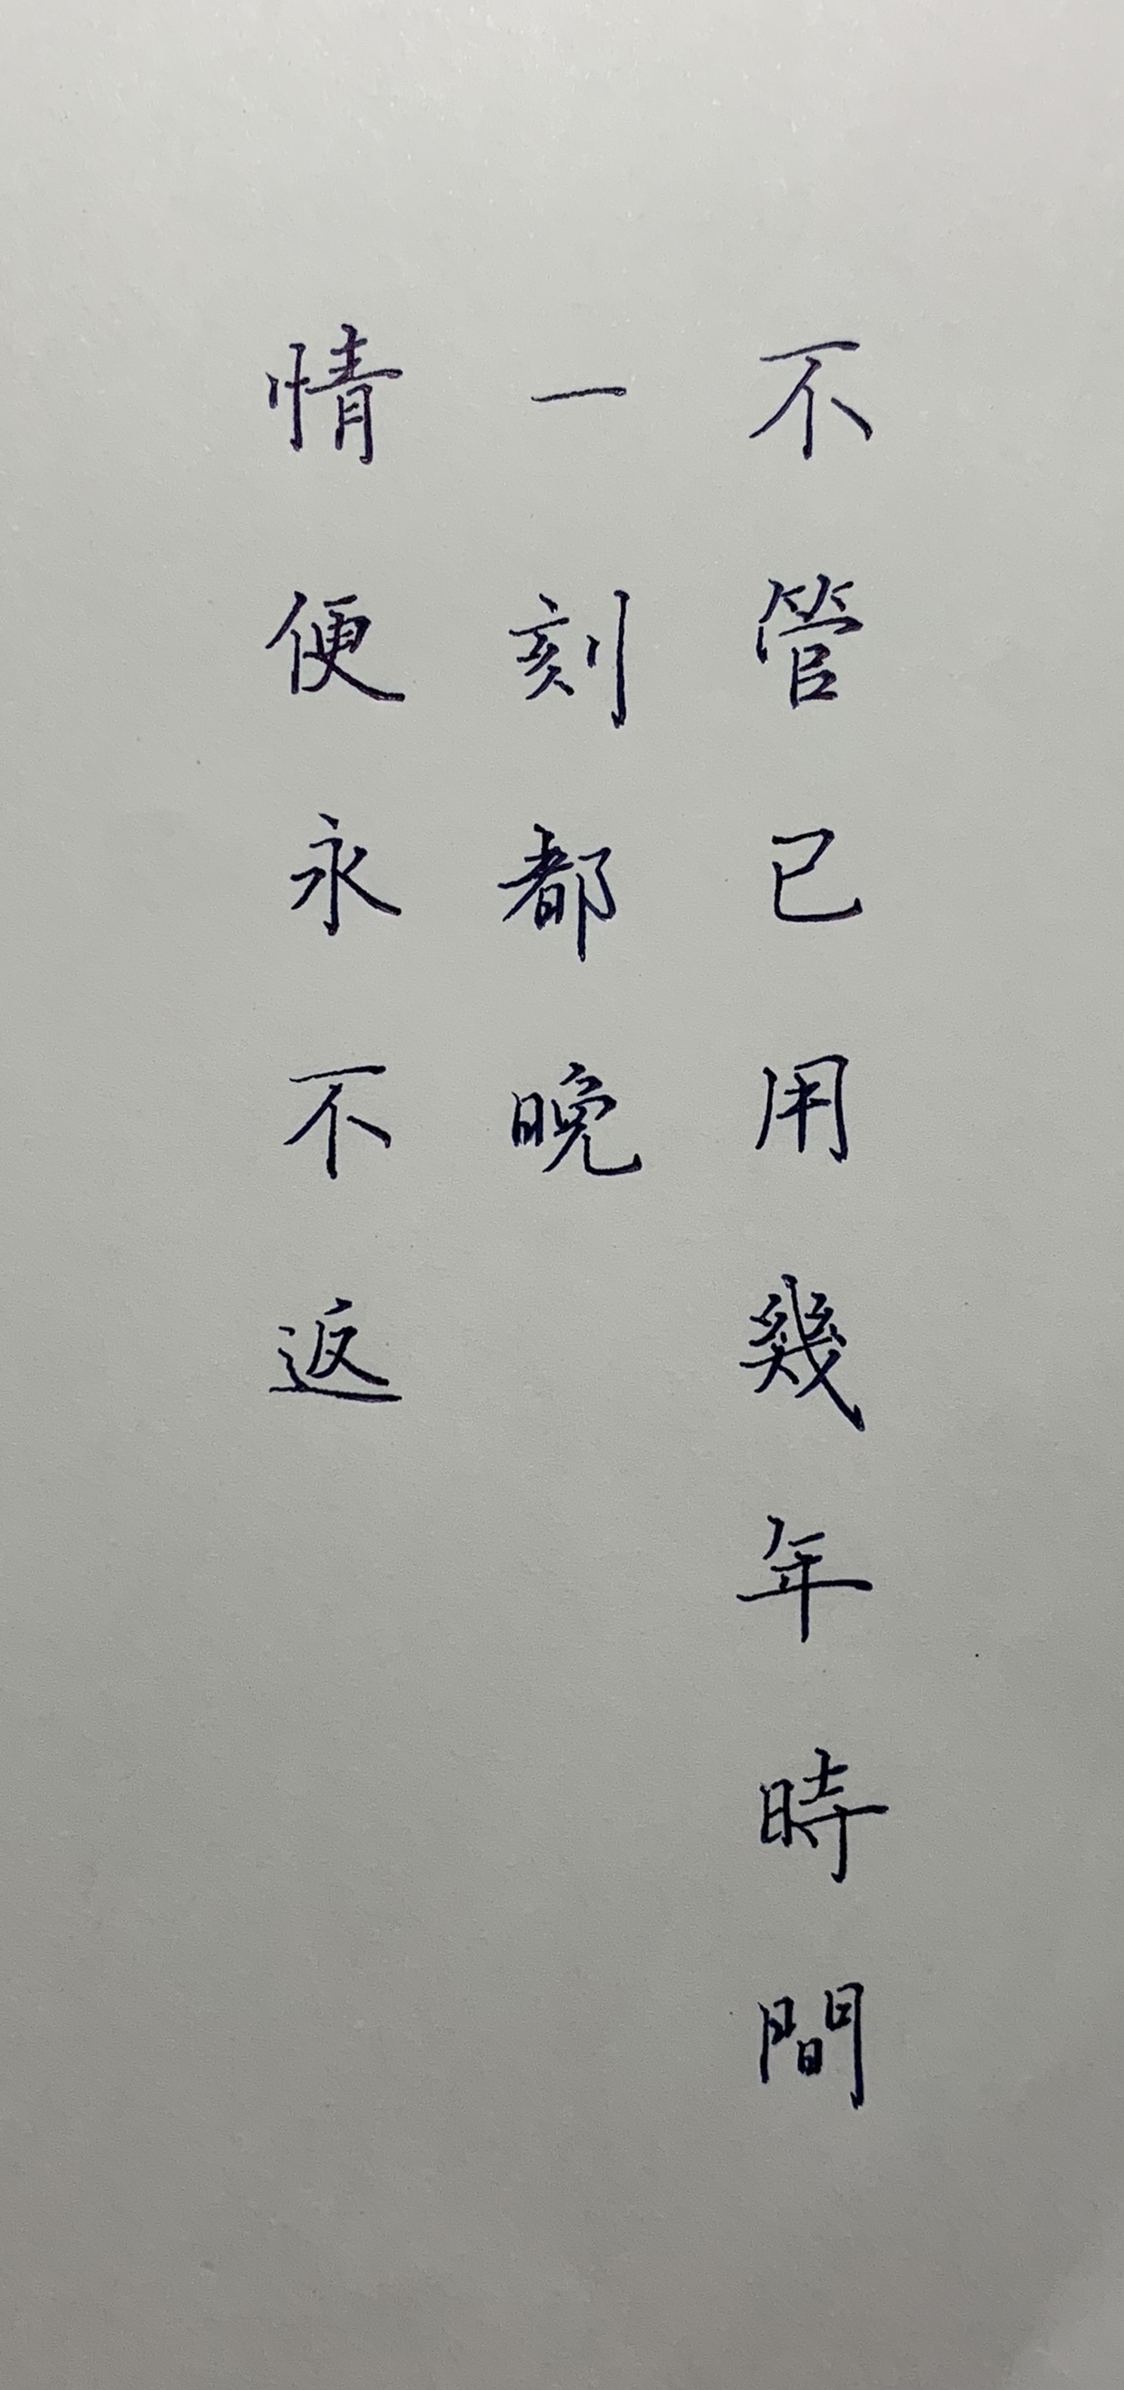 不管已用幾年時間
一刻都晚
情便永不返